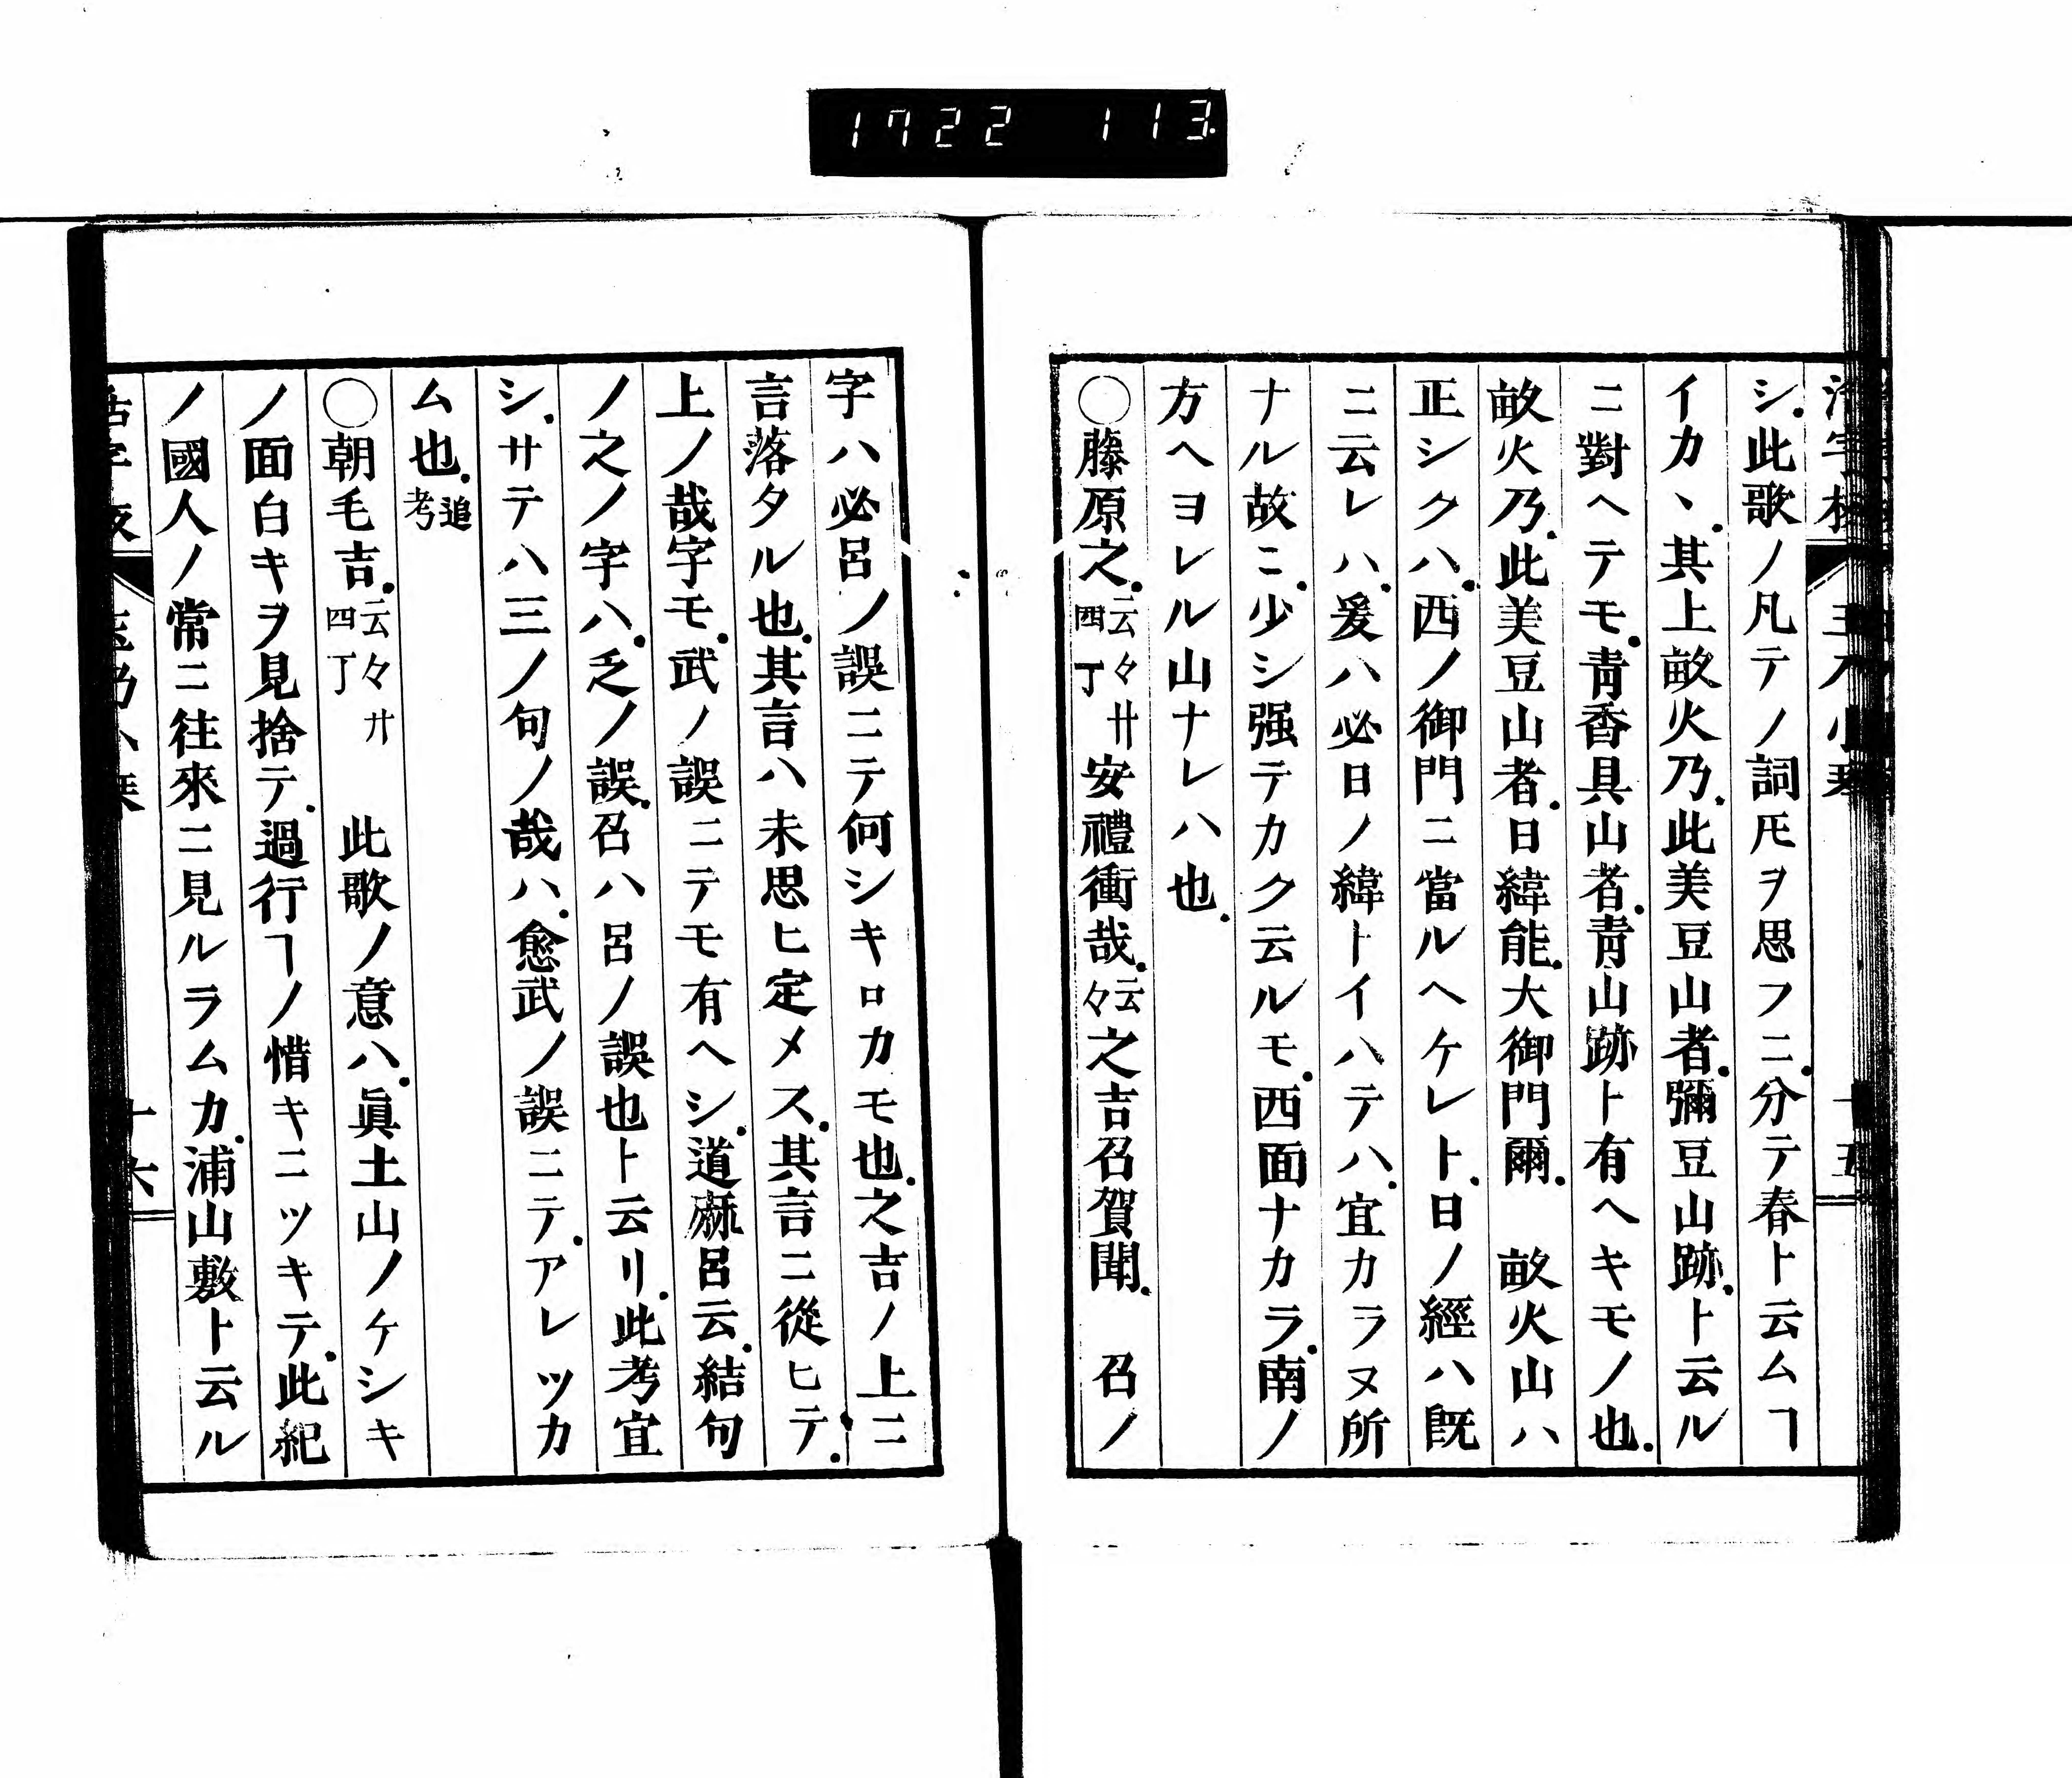 1722 113
シ.此歌ノ凡テノ詞𪜈ヲ思フニ.分テ春ト云ムヿ
イカヽ.其上畝火乃.此美豆山者.彌豆山跡.ト云ル
ニ對ヘテモ.靑香具山者.靑山跡ト有ヘキモノ也.
畝火乃.此美豆山者.日緯能.大御門爾.　畝火山ハ
正シクハ.西ノ御門ニ當ルヘケレト.日ノ經ハ既
ニ云レハ.爰ハ必日ノ緯トイハテハ.宜カラヌ所
ナル故ニ.少シ强テカク云ルモ.西面ナカラ.南ノ
方ヘヨレル山ナレハ也.
○藤原之.云々卄四丁安禮衝哉.云々之吉召賀聞.　召ノ
字ハ必呂ノ誤ニテ何シキロカモ也.之吉ノ上ニ
言落タル也.其言ハ未思ヒ定メス.其言ニ從ヒテ.
上ノ哉字モ.武ノ誤ニテモ有ヘシ.道麻呂云.結句
ノ之ノ字ハ.乏ノ誤.召ハ呂ノ誤也ト云リ.此考宜
シ.サテハ三ノ句ノ哉ハ.愈武ノ誤ニテ.アレツカ
ム也.追考
○朝毛吉.云々廾四丁　此歌ノ意ハ.眞土山ノケシキ
ノ面白キヲ見捨テ.過行ヿノ惜キニツキテ.此紀
ノ國人ノ常ニ往來ニ見ルラムカ.浦山敷ト云ル
十六